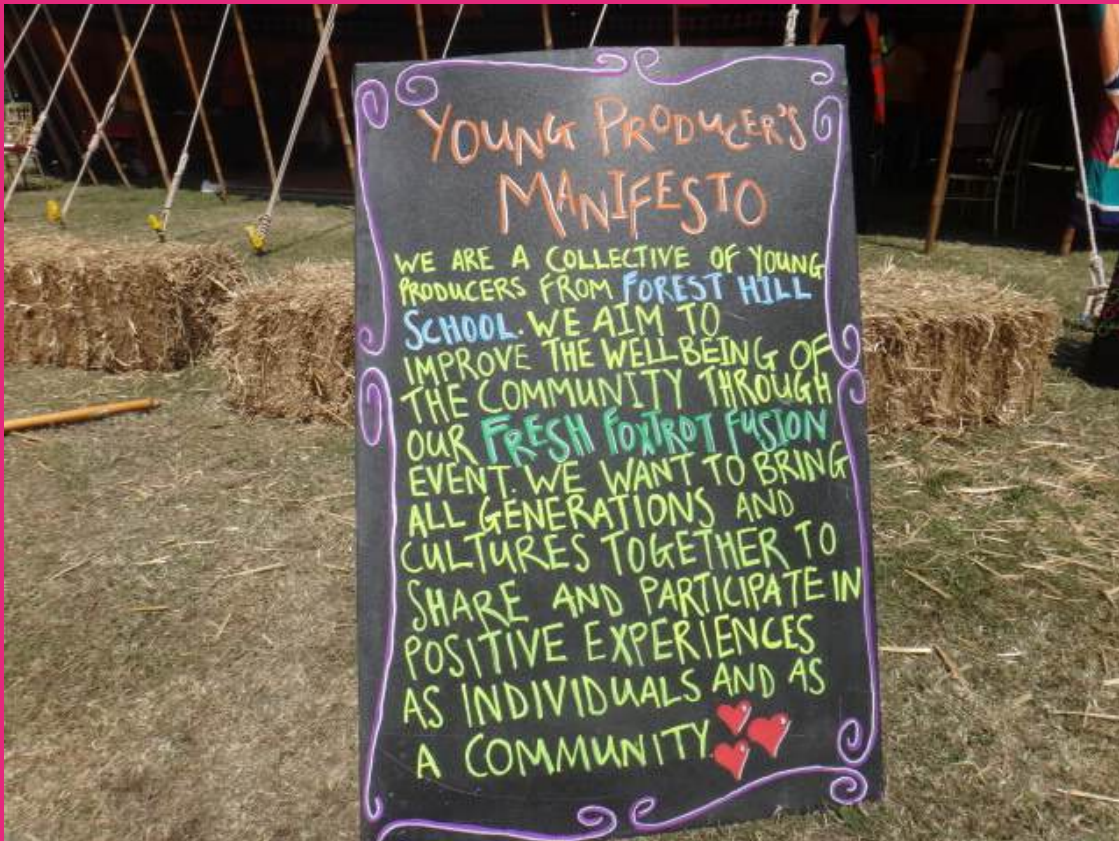 YOUNG PRODUCER'S
MANIFESTO
WE ARE A COLLECTIVE OF YOUNG
PRODUCERS FROM FOREST HILL
SCHOOL. WE AIM TO
IMPROVE THE WELLBEING OF
THE COMMUNITY THROUGH
OUR FRESH FOXTROT FUSION
EVENT. WE WANT TO BRING
ALL GENERATIONS AND
CULTURES TOGETHER TO
SHARE AND PARTICIPATE IN
POSITIVE EXPERIENCES
AS INDIVIDUALS AND AS
A COMMUNITY.